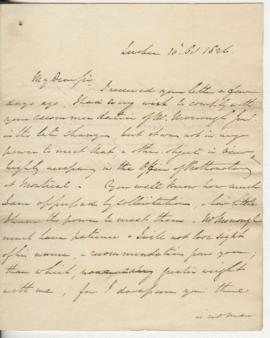 Quebec 10 Oct 1826
My Dear Sir
I received your letter a few
days ago, I had every wish to comply with
your recommendation of Mr. McDonough
in the late changes, but it was not in my
power to meet that & other objects in view
highly necessary in the Office of Prothonotary
at Montreal. You well know how much
I am oppressed by solicitations, & how little
I have the power to meet them. McDonough
must have patience & I will not lose sight
of his name, a recommendation from you,
than which, greater weight
with me, for I do assure you there
is no man